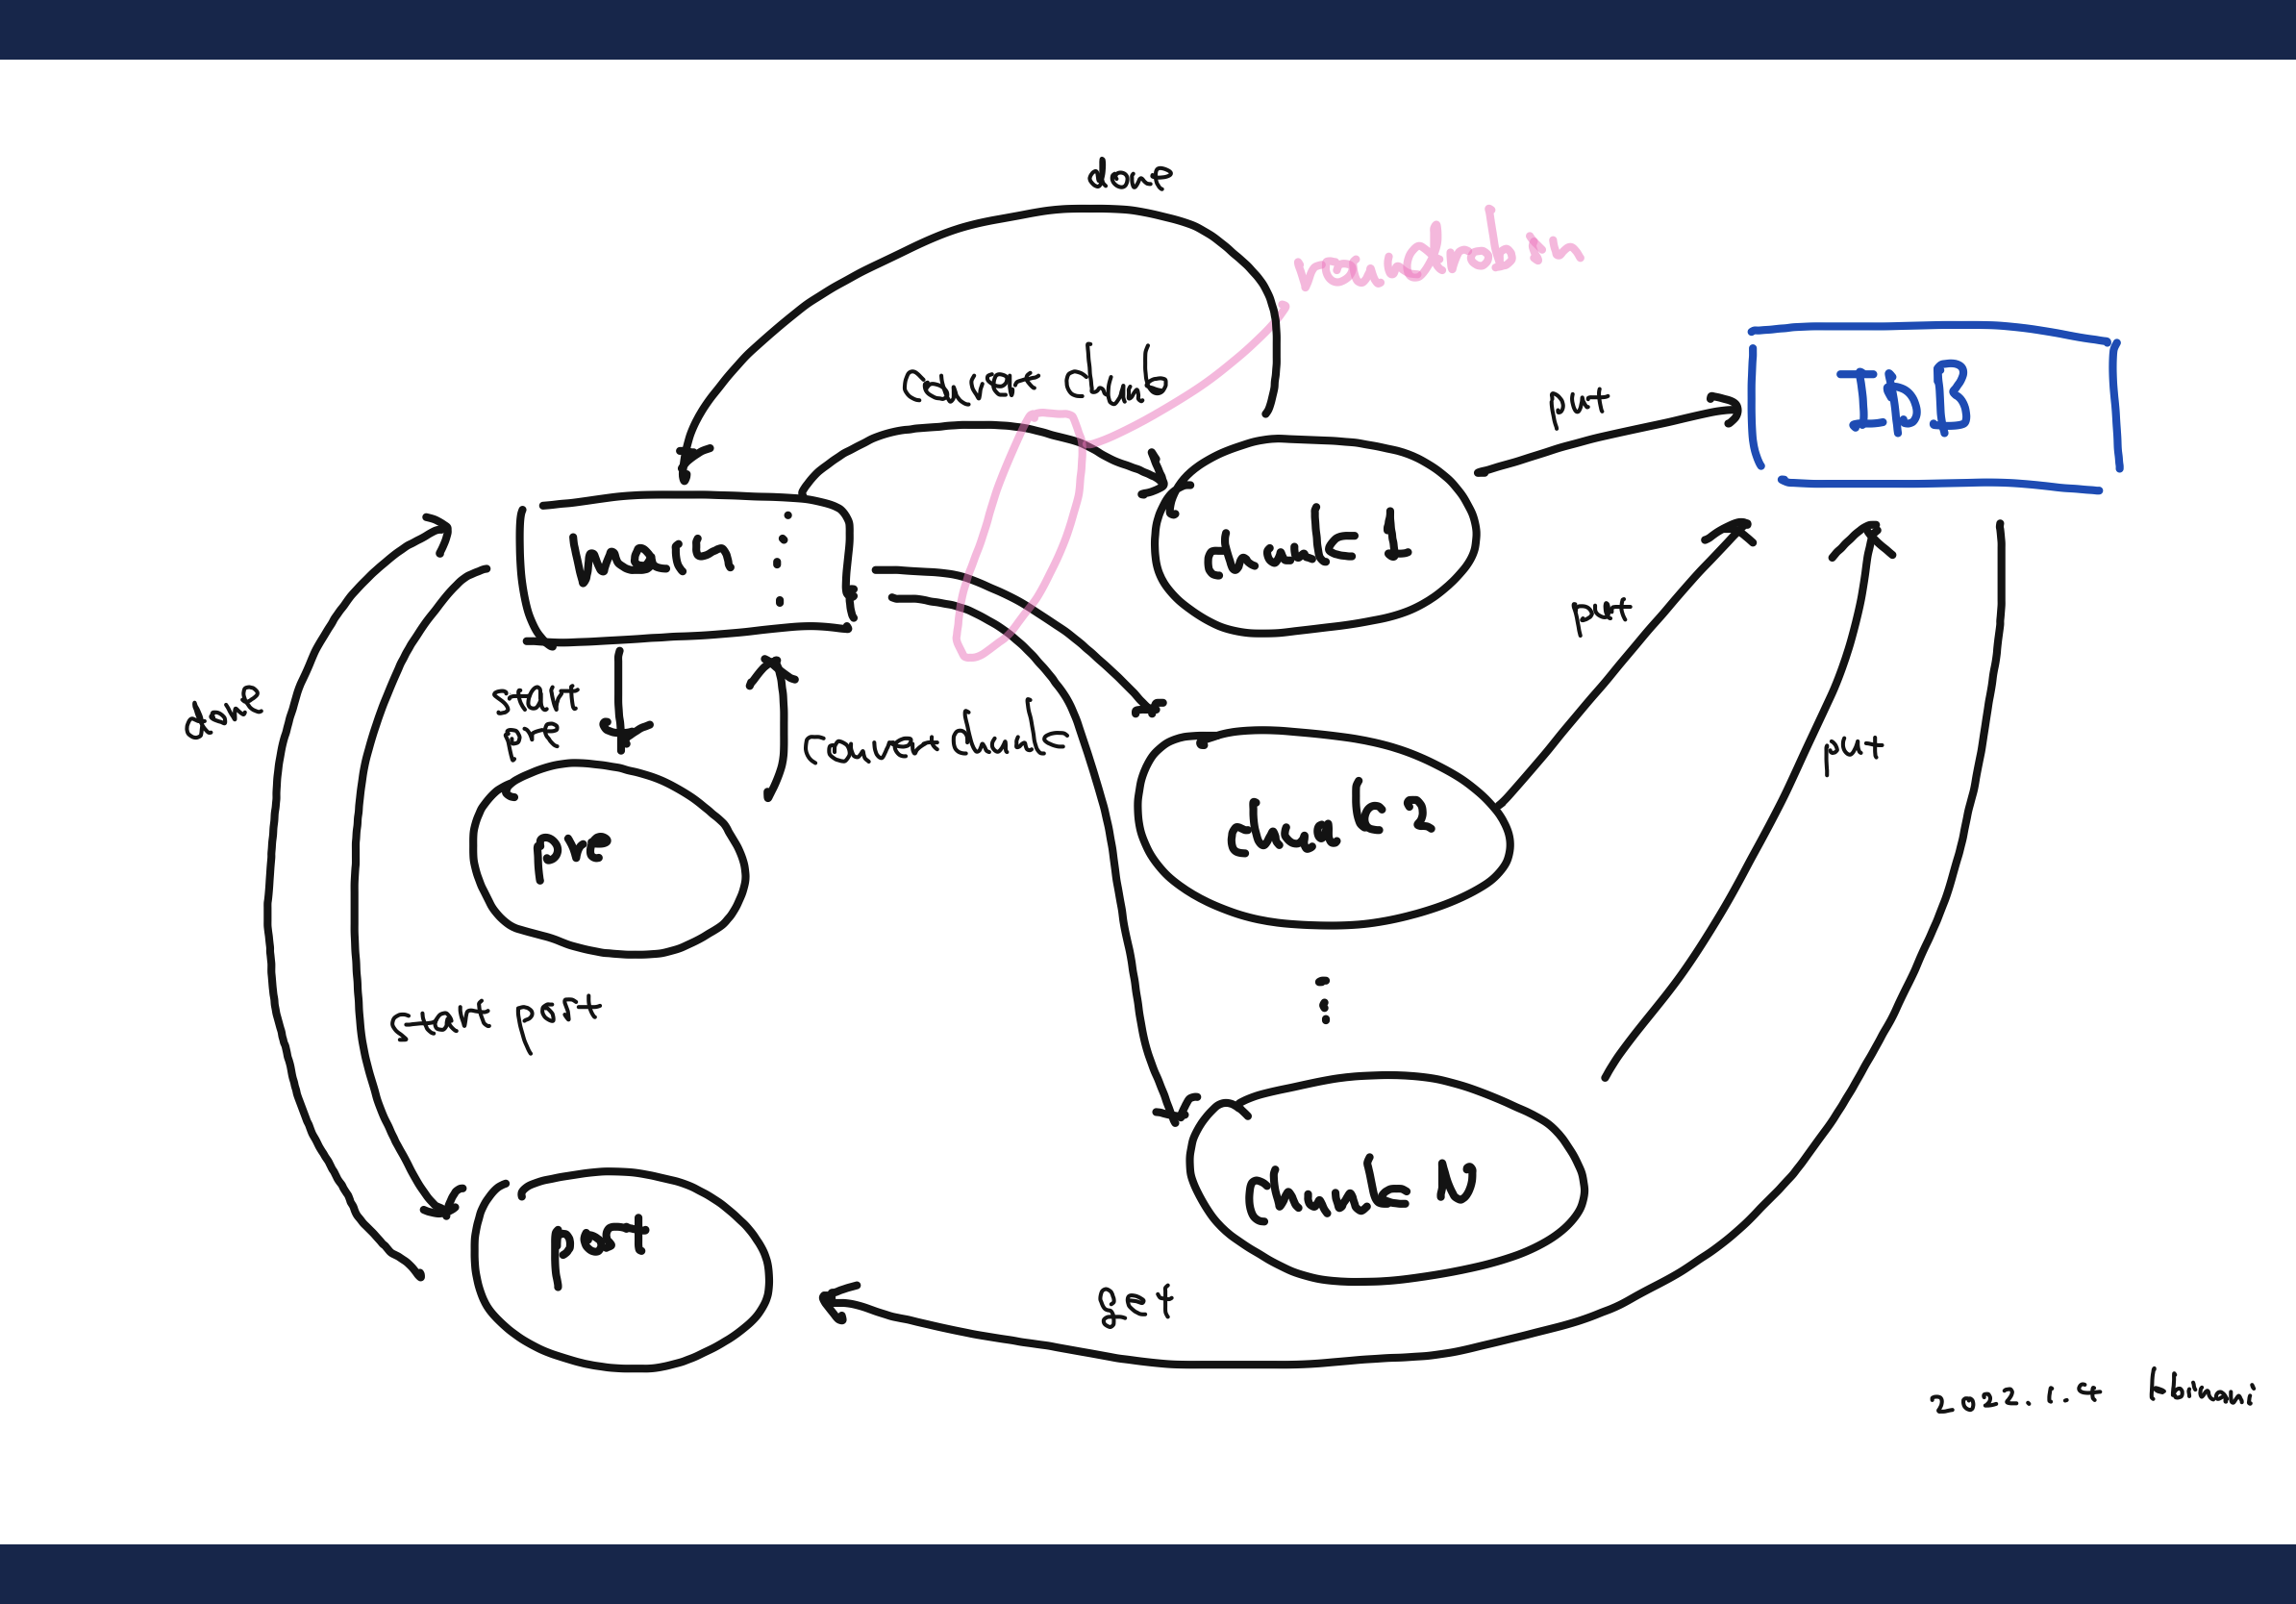 done
roundrobin
convert chunk
put
IDB
main
chunk 1
put
done
start
pre
convert chunk
put
pre
chunk 2
start post
chunk N
post
get
2022.1.4 kbinani